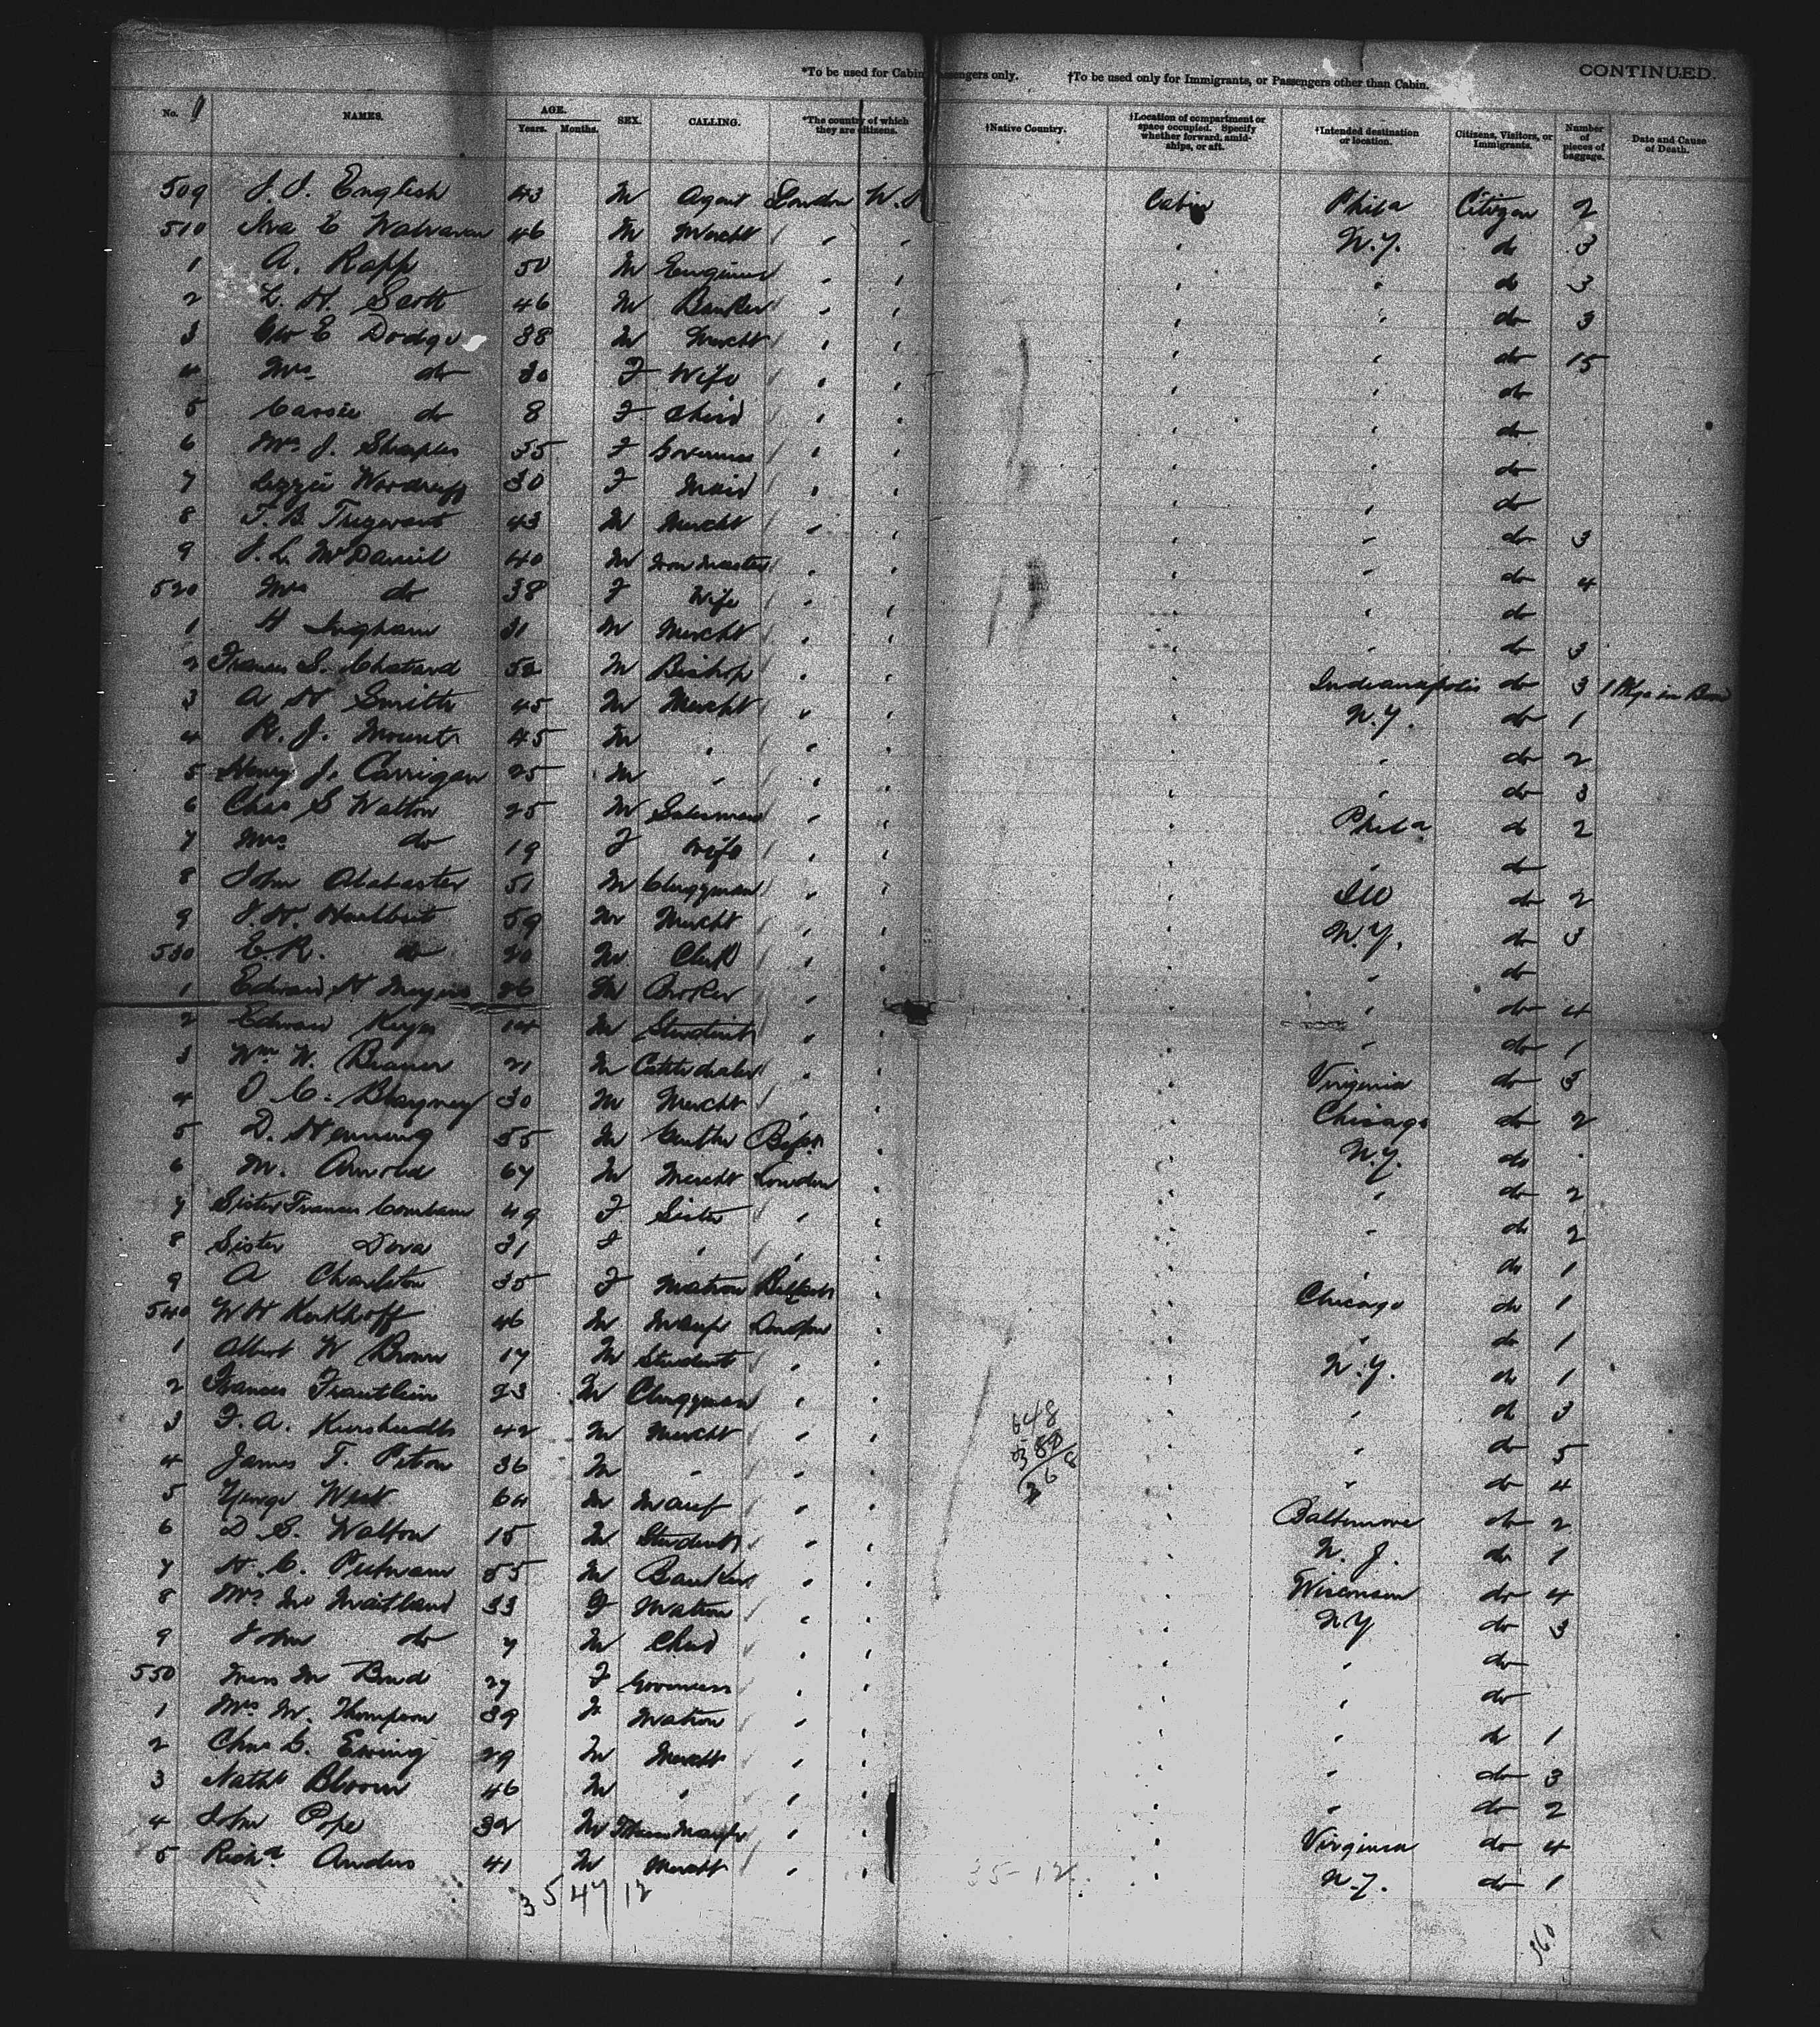 *To be used for Cabin Passengers only. †To be used only for Immigrants, or Passengers other than Cabin. CONTINUED.
No. NAMES. AGE. Years. Months. SEX. CALLING. *The country of which they are citizens. †Native Country. †Location of compartment or space occupied. Specify whether forward, amidships, or aft. †Intended destination or location. Citizens, Visitors, or Immigrants. Number of pieces of baggage. Date and Cause of Death.
509 J. J. English 43 M Agent London Cabin Phila Citizen 2
510 Ira E 46 M Mercht " " " N.Y. do 3
1 A. Rapp 50 M Engineer " " " " do 3
2 L. H. Scott 46 M Banker " " " " do 3
3 Geo E Dodge 38 M Mercht " " " " do 15
4 Mrs do 30 F Wife " " " " do
5 Cassie do 8 F Child " " " " do
6 Mrs J. Sharples 35 F Governess " " " " do
7 Lizzie Woodruff 30 F Maid " " " " do
8 T. B. Trezevant 43 M Mercht " " " " do 3
9 J. L. McDaniel 40 M Iron Master " " " " do 4
520 Mrs do 38 F Wife " " " " do
1 H Ingham 31 M Mercht " " " " do 3
2 Francis S. Chatard 52 M Bishop " " " Indianapolis do 3
3 A H Smith 45 M Mercht " " " N.Y. do 1
4 R. J. Mount 45 M " " " " " do 2
5 Henry J. Carrigan 25 M " " " " " do 3
6 Chas S Walton 25 M Salesman " " " Phila do 2
7 Mrs do 19 F Wife " " " " do
8 John Alabaster 51 M Clergyman " " " Ill do 2
9 J. H. Hurlburt 59 M Mercht " " " N.Y. do 3
530 E. R. do 20 M Clerk " " " " do
1 Edward H 26 M Broker " " " " do 4
2 Edward Keyes 14 M Student " " " " do 1
3 Wm W. 21 M Cattle dealer " " " Virginia do 3
4 J. C. Blayney 30 M Mercht " " " Chicago do 2
5 D. Henning 55 M " " N.Y. do
6 M. Arnold 67 M Mercht London " " " do 2
7 Sister Frances 49 F Sister " " " " do 2
8 Sister Dora 31 F " " " " " do 1
9 A Charleton 35 F Matron Belfast " " Chicago do 1
540 W H Kerkhoff 46 M Manfr London " " " do 1
1 Albert W Brown 17 M Student " " " N.Y. do 1
2 Frances 23 M Clergyman " " " " do 3
3 F. A. 42 M Mercht " " " " do 5
4 James T. 36 M " " " " " do 4
5 George West 64 M Manf " " " Baltimore do 2
6 D. S. Walton 15 M Student " " " N.J. do 1
7 H. C. Putnam 55 M Banker " " " Wisconsin do 4
8 Mrs M Maitland 33 F Matron " " " N.Y. do 3
9 John do 7 M Child " " " " do
550 Miss M 27 F Governess " " " " do
1 Mrs M. Thompson 39 F Matron " " " " do 1
2 Chas L. Ewing 29 M Mercht " " " " do 3
3 Nathl Bloom 46 M " " " " " do 2
4 John Pope 32 M " " " Virginia do 4
5 Richd Anders 41 M Mercht " " " N.Y. do 1
35 47 12
35-12
648
360